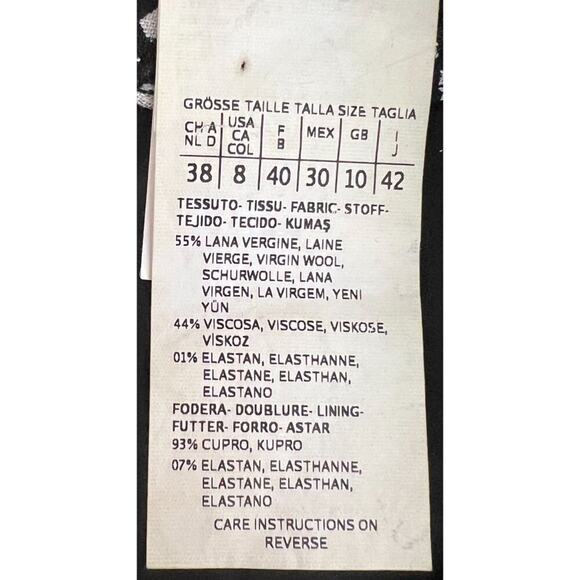 GRÖSSE TAILLE TALLA SIZE TAGLIA
CH A USA F MEX GB I
NL D CA B J
COL
38 8 40 30 10 42
TESSUTO- TISSU- FABRIC- STOFF-
TEJIDO- TECIDO- KUMAŞ
55% LANA VERGINE, LAINE
VIERGE, VIRGIN WOOL,
SCHURWOLLE, LANA
VIRGEN, LA VIRGEM, YENI
YÜN
44% VISCOSA, VISCOSE, VISKOSE,
VİSKOZ
01% ELASTAN, ELASTHANNE,
ELASTANE, ELASTHAN,
ELASTANO
FODERA- DOUBLURE- LINING-
FUTTER- FORRO- ASTAR
93% CUPRO, KUPRO
07% ELASTAN, ELASTHANNE,
ELASTANE, ELASTHAN,
ELASTANO
CARE INSTRUCTIONS ON
REVERSE